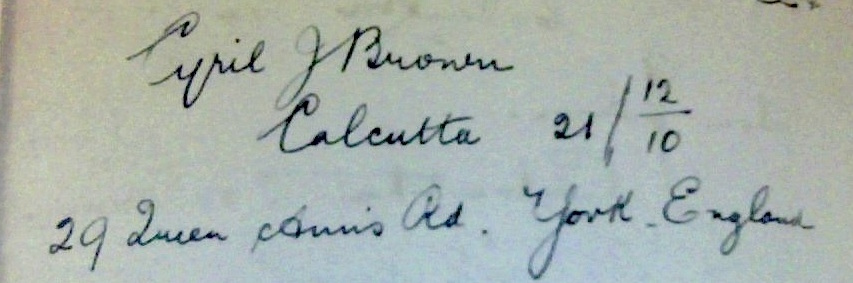 Cyril J Brown
Calcutta 21/12/10
29 Queen Annis Rd. York. England